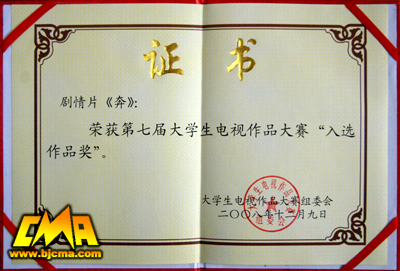 证 书
剧情片《奔》:
荣获第七届大学生电视作品大赛“入选
作品奖”。
大学生电视作品大赛组委会
二〇〇八年十二月九日
CMA
www.bjcma.com